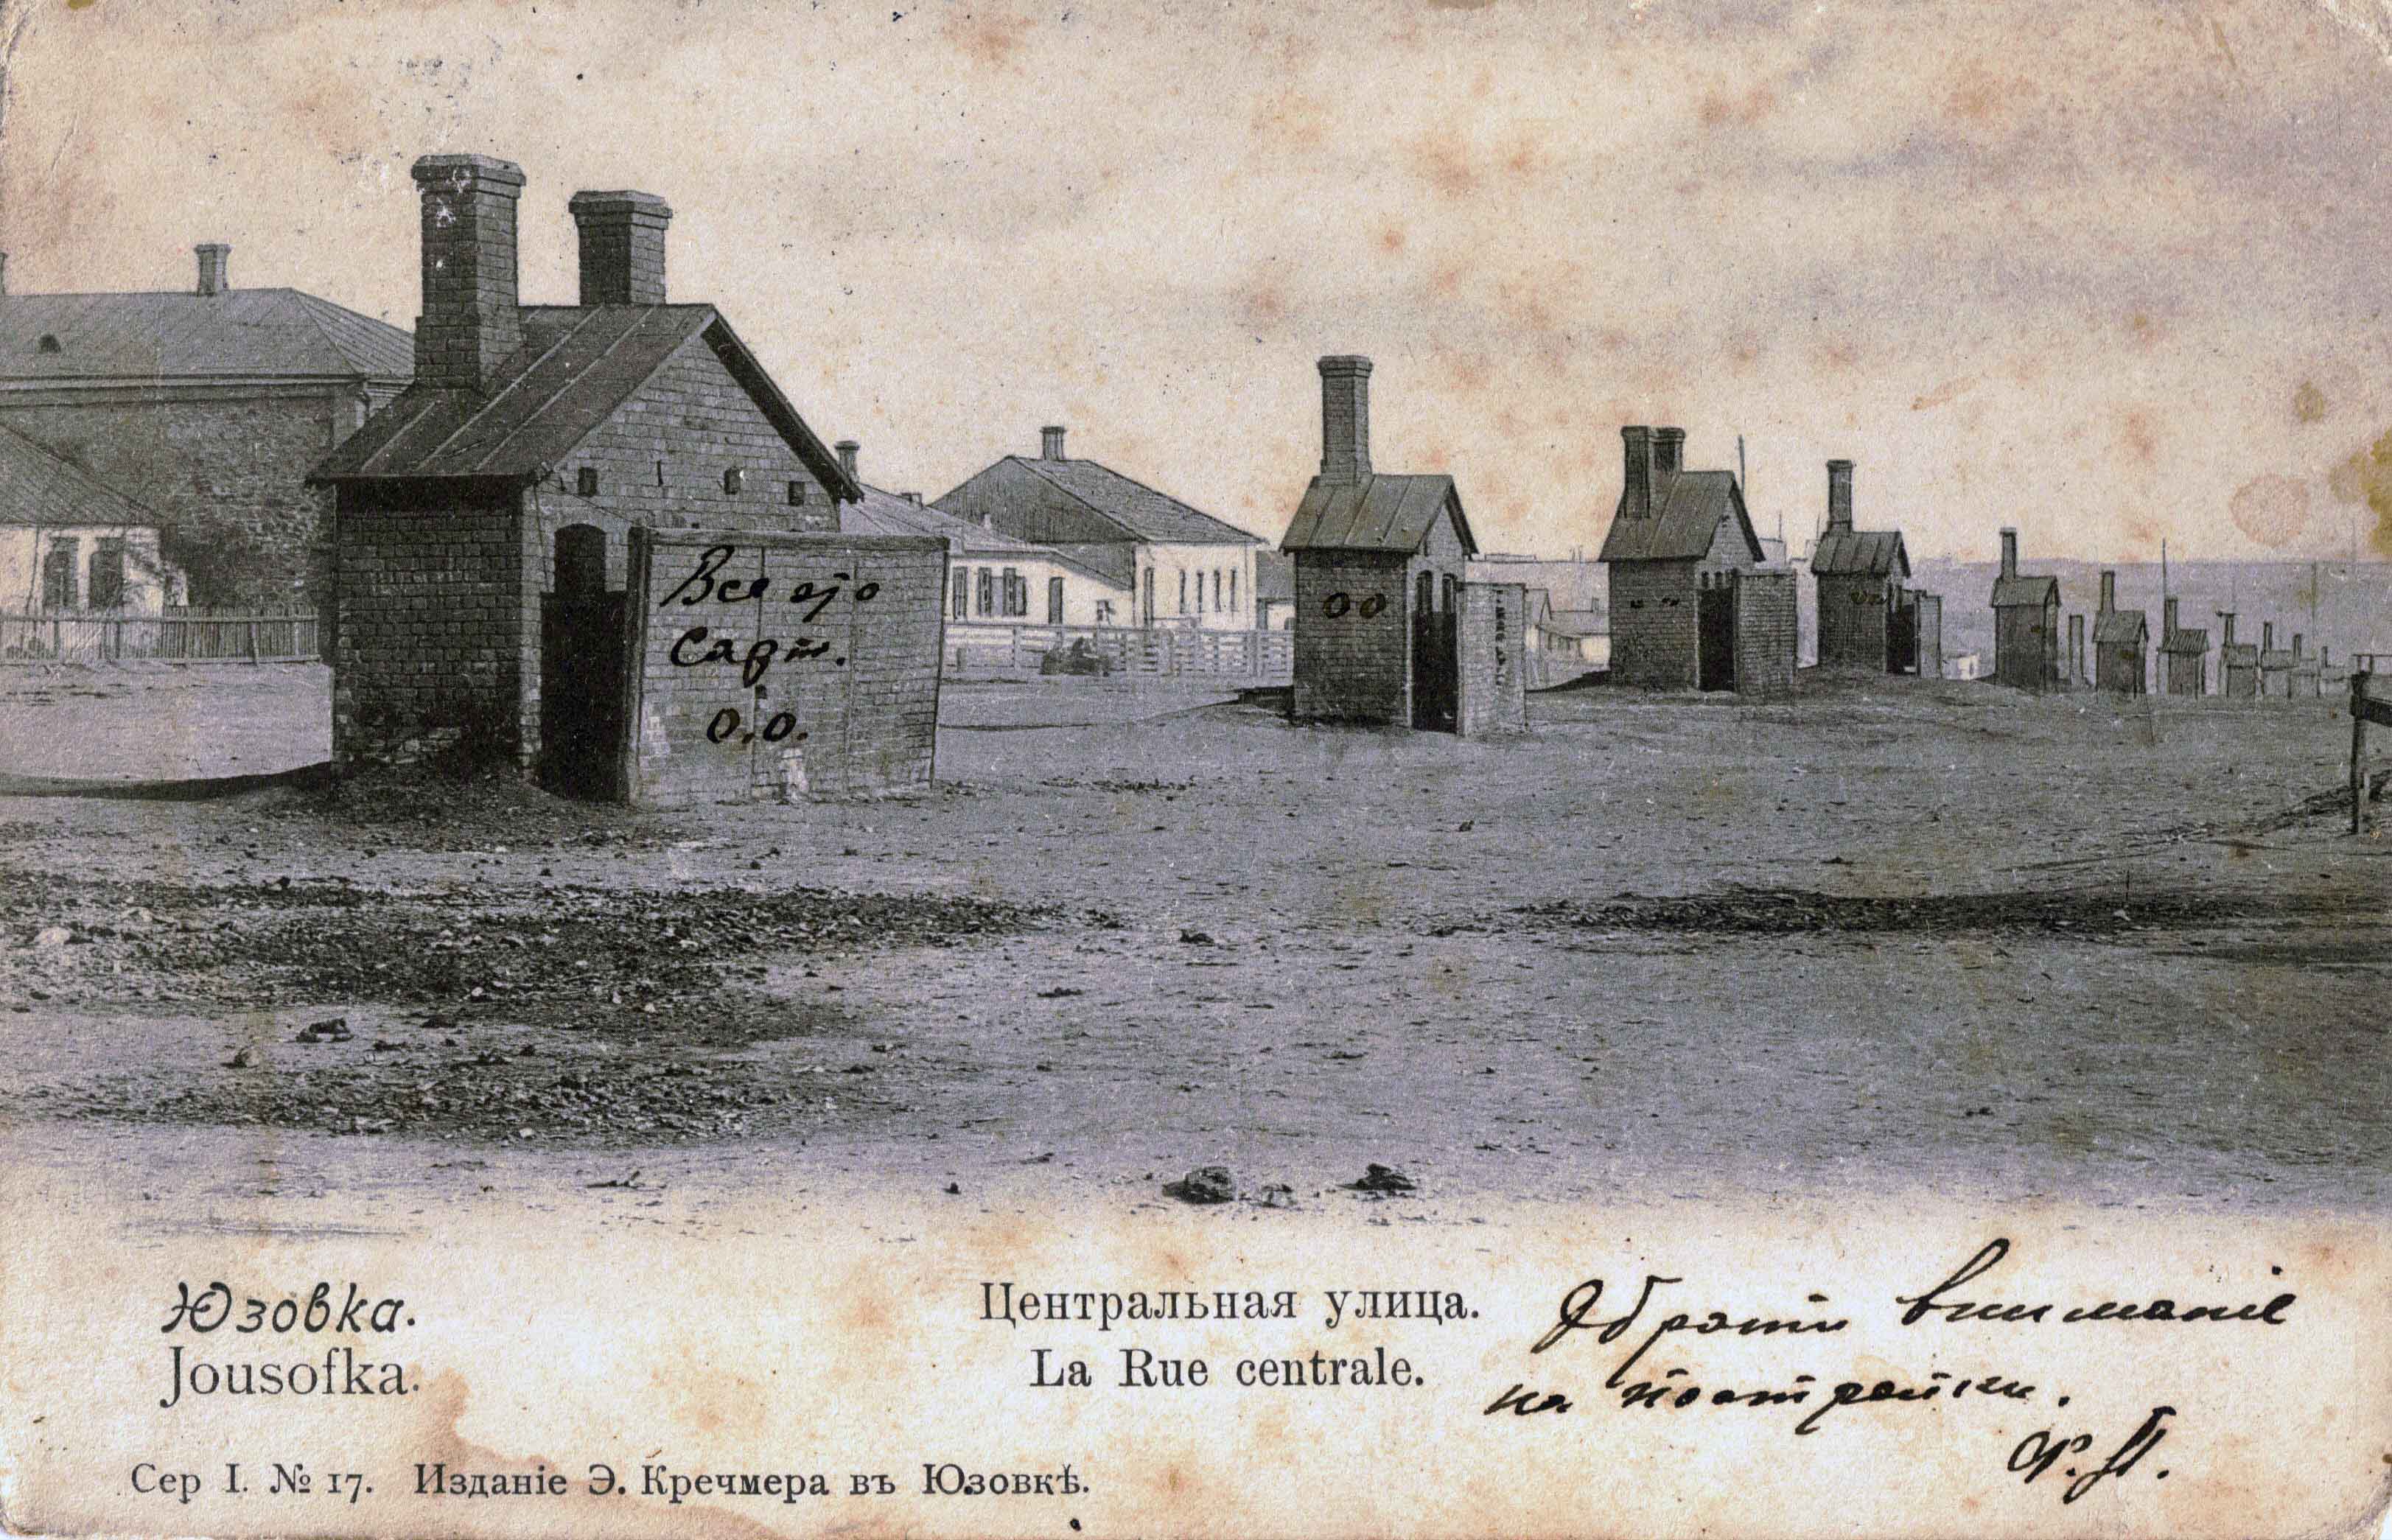 Все это
сорт.
О.О.
ОО
Юзовка.
Jousofka.
Центральная улица.
La Rue centrale.
Обрати вниманіе
на постройки.
Сер I. № 17. Изданіе Э. Кречмера въ Юзовкѣ.